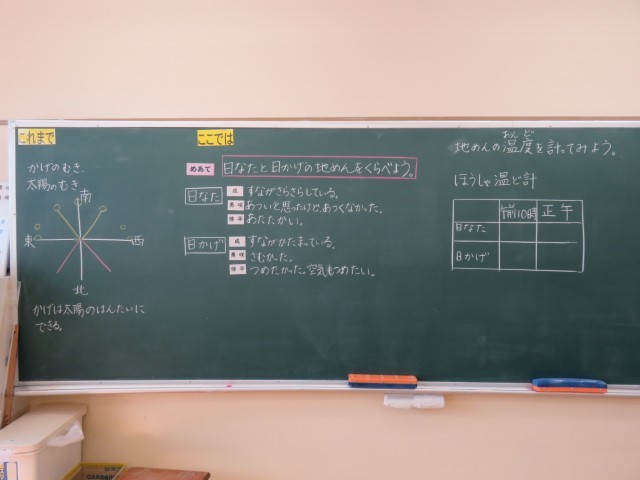 これまで
かげのむき、
太陽のむき
南
東
西
北
かげは太陽のはんたいに
できる。
ここでは
めあて
日なたと日かげの地めんをくらべよう。
日なた
すながさらさらしている。
あついと思ったけど、あつくなかった。
あたたかい。
日かげ
すながかたまっている。
さむかった。
つめたかった。空気もつめたい。
おんど
地めんの温度を計ってみよう。
ほうしゃ温ど計
午前10時 正午
日なた
日かげ